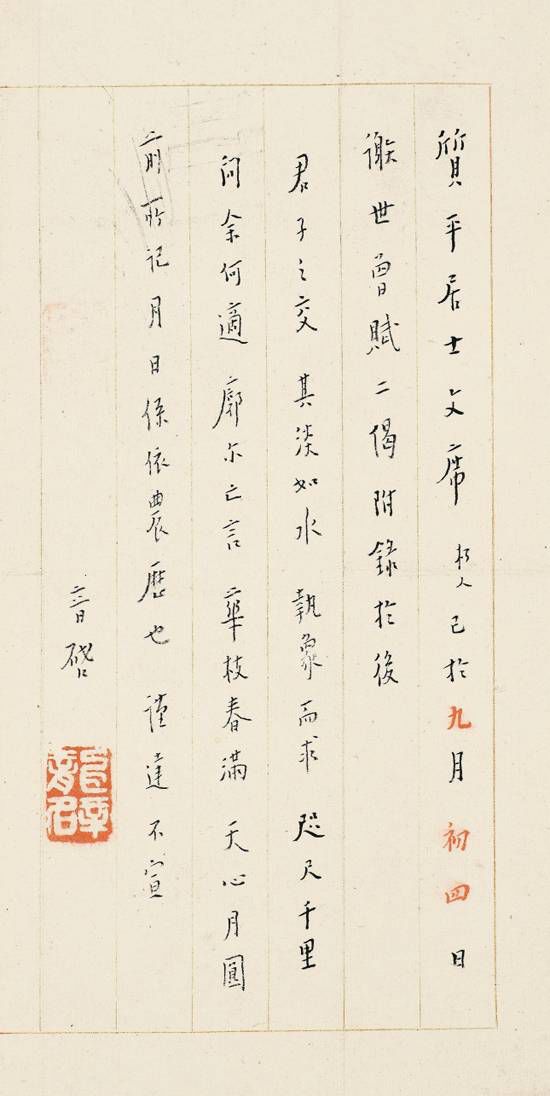 質平居士文席 朽人已於九月初四日
謝世曾賦二偈附錄於後
君子之交 其淡如水 執象而求 咫尺千里
問余何適 廓尔亡言 華枝春滿 天心月圓
前所記月日係依農歷也 謹達不宣
音啓